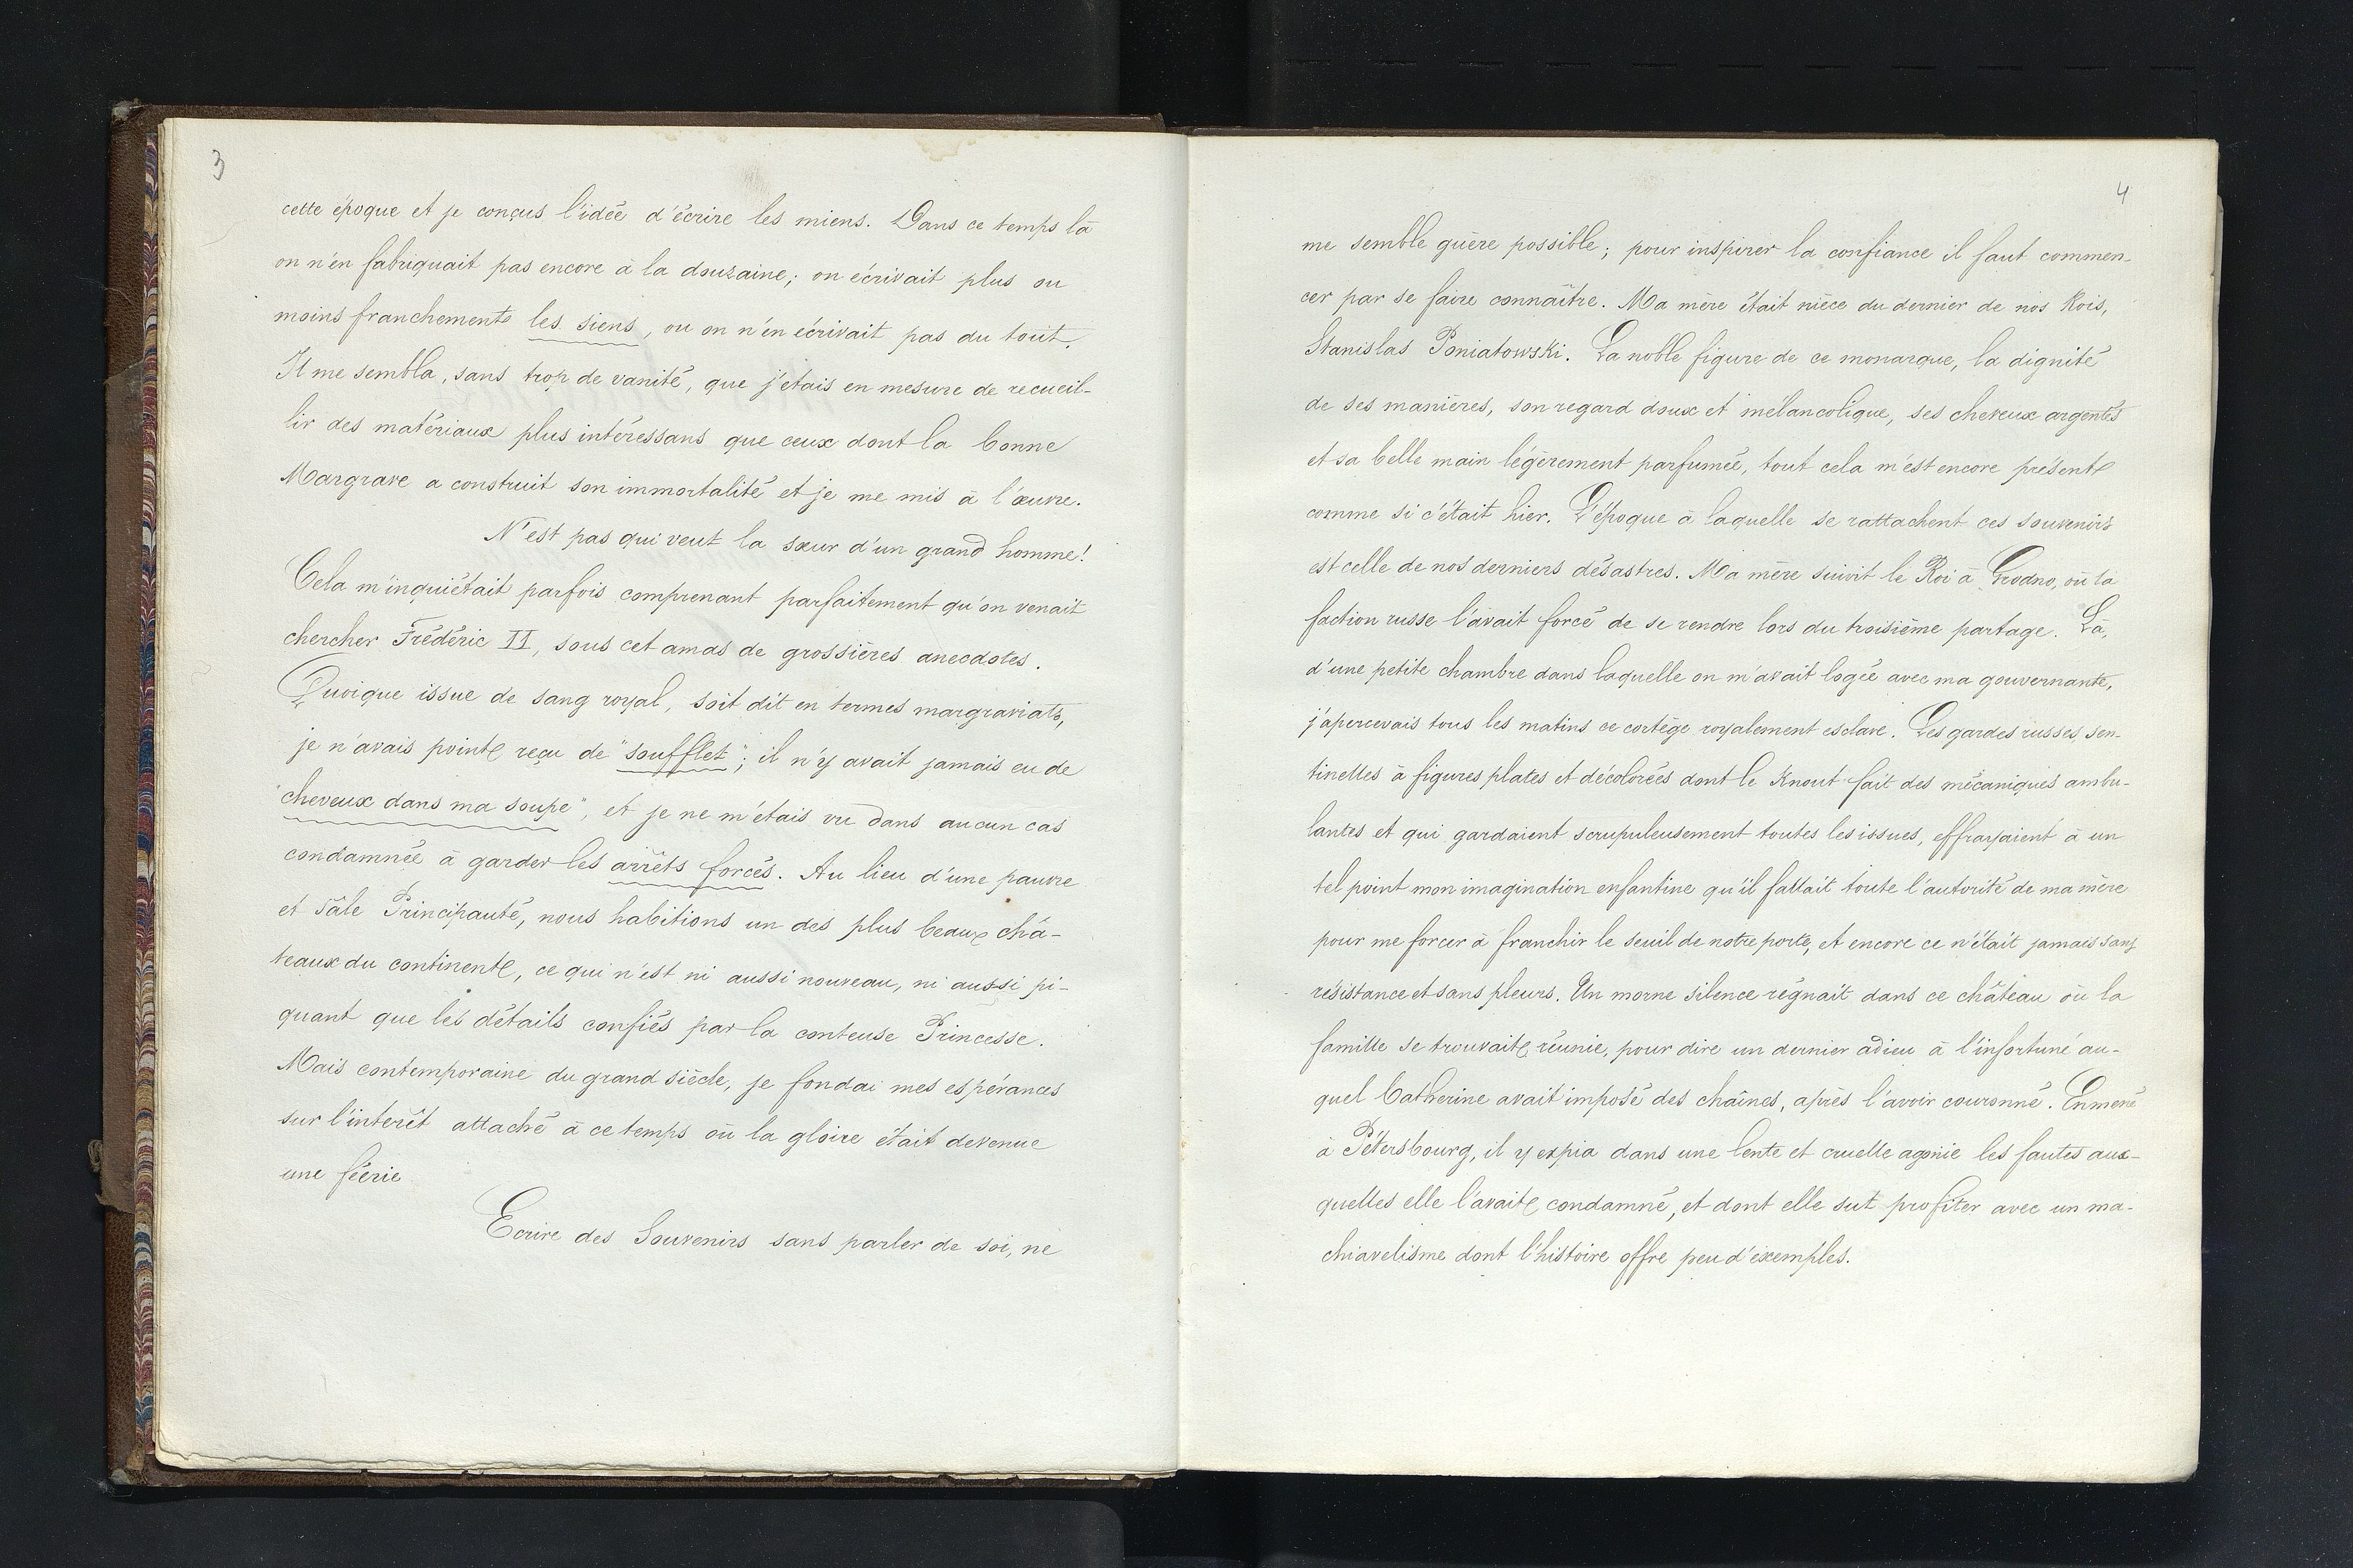 3
cette époque et je conçus l'idée d'écrire les miens. Dans ce temps là
on n'en fabriquait pas encore à la douzaine; on écrivait plus ou
moins franchement les siens, ou on n'en écrivait pas du tout.
Il me sembla, sans trop de vanité, que j'étais en mesure de recueil-
lir des matériaux plus intéressans que ceux dont la bonne
Margrave a construit son immortalité et je me mis à l'œuvre.
N'est pas qui veut la sœur d'un grand homme!
Cela m'inquiétait parfois comprenant parfaitement qu'on venait
chercher Frédéric II, sous cet amas de grossières anecdotes.
Quoique issue de sang royal, soit dit en termes margraviats,
je n'avais point reçu de "soufflet"; il n'y avait jamais eu de
"cheveux dans ma soupe", et je ne m'étais vu dans aucun cas
condamnée à garder les arrêts forcés. Au lieu d'une pauvre
et sâle Principauté, nous habitions un des plus beaux châ-
teaux du continent, ce qui n'est ni aussi nouveau, ni aussi pi-
quant que les détails confiés par la conteuse Princesse.
Mais contemporaine du grand siècle, je fondai mes espérances
sur l'interêt attaché à ce temps où la gloire était devenue
une féerie
Ecrire des Souvenirs sans parler de soi, ne
4
me semble guère possible; pour inspirer la confiance il faut commen-
cer par se faire connaître. Ma mère était nièce du dernier de nos Rois,
Stanislas Poniatowski. La noble figure de ce monarque, la dignité
de ses manières, son regard doux et mélancolique, ses cheveux argentés
et sa belle main légèrement parfumée, tout cela m'est encore présent
comme si c'était hier. L'époque à laquelle se rattachent ces souvenirs
est celle de nos derniers désastres. Ma mère suivit le Roi à Grodno, où la
faction russe l'avait forcé de se rendre lors du troisième partage. Là,
d'une petite chambre dans laquelle on m'avait logée avec ma gouvernante,
j'apercevais tous les matins ce cortège royalement esclave. Les gardes russes, sen-
tinelles à figures plates et décolorées dont le Knout fait des mécaniques ambu-
lantes et qui gardaient scrupuleusement toutes les issues, effrayaient à un
tel point mon imagination enfantine qu'il fallait toute l'autorité de ma mère
pour me forcer à franchir le seuil de notre porte, et encore ce n'était jamais sans
résistance et sans pleurs. Un morne silence régnait dans ce château où la
famille se trouvait réunie, pour dire un dernier adieu à l'infortuné au-
quel Catherine avait imposé des chaînes, après l'avoir couronné. Enmené
à Pétersbourg, il y expia dans une lente et cruelle agonie les fautes aux-
quelles elle l'avait condamné, et dont elle sut profiter avec un ma-
chiavelisme dont l'histoire offre peu d'exemples.